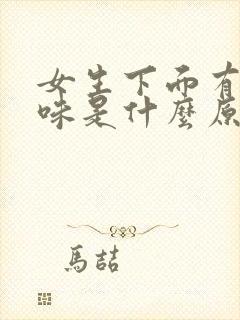 女生下面有
味是什麼原
馬喆